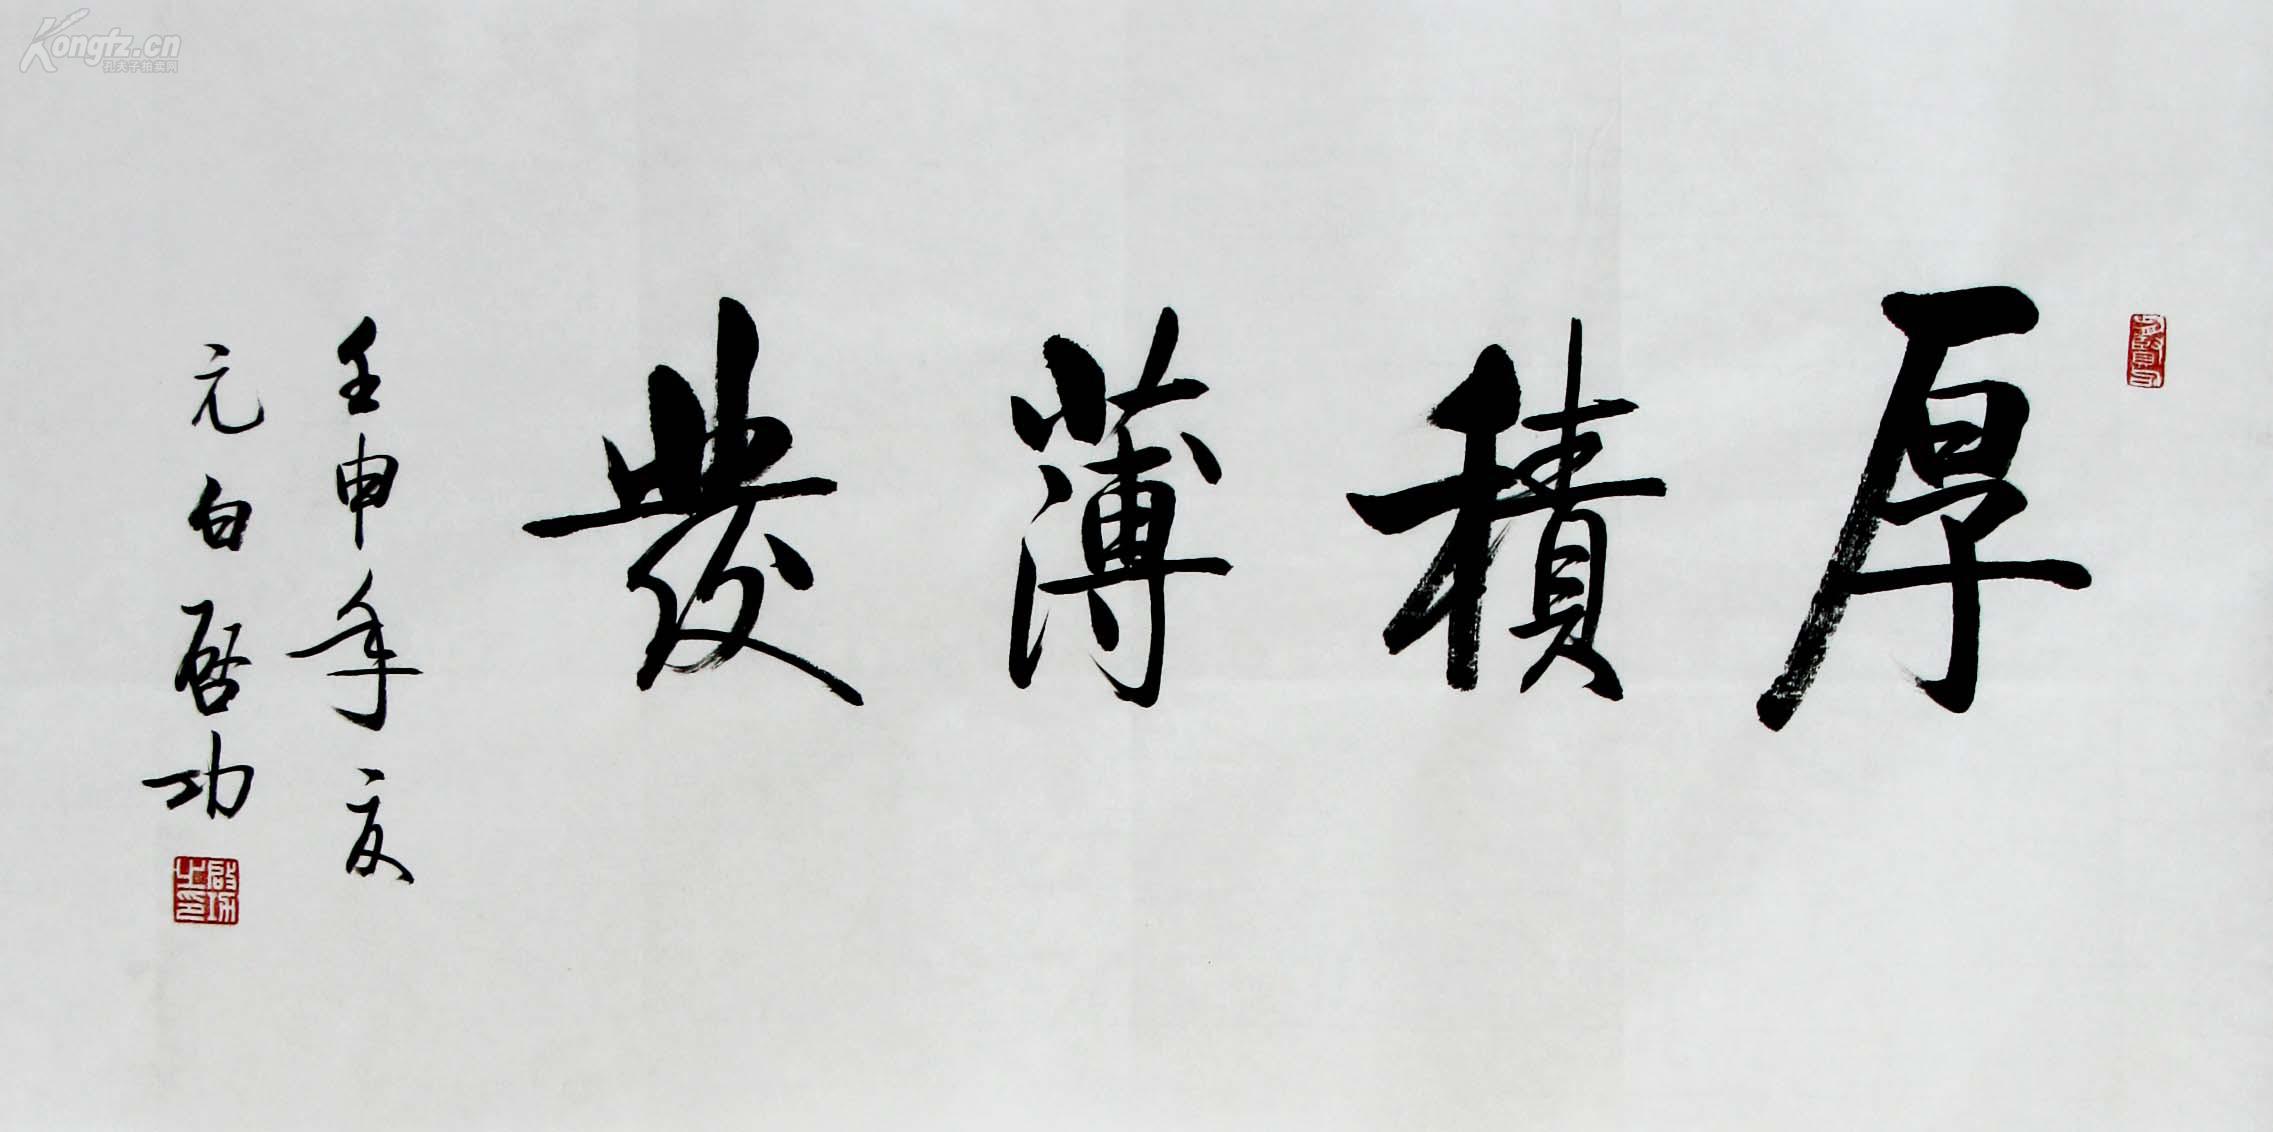 厚積薄發
壬申年夏
元白啓功
啟功之印
Kongfz.cn
孔夫子拍卖网